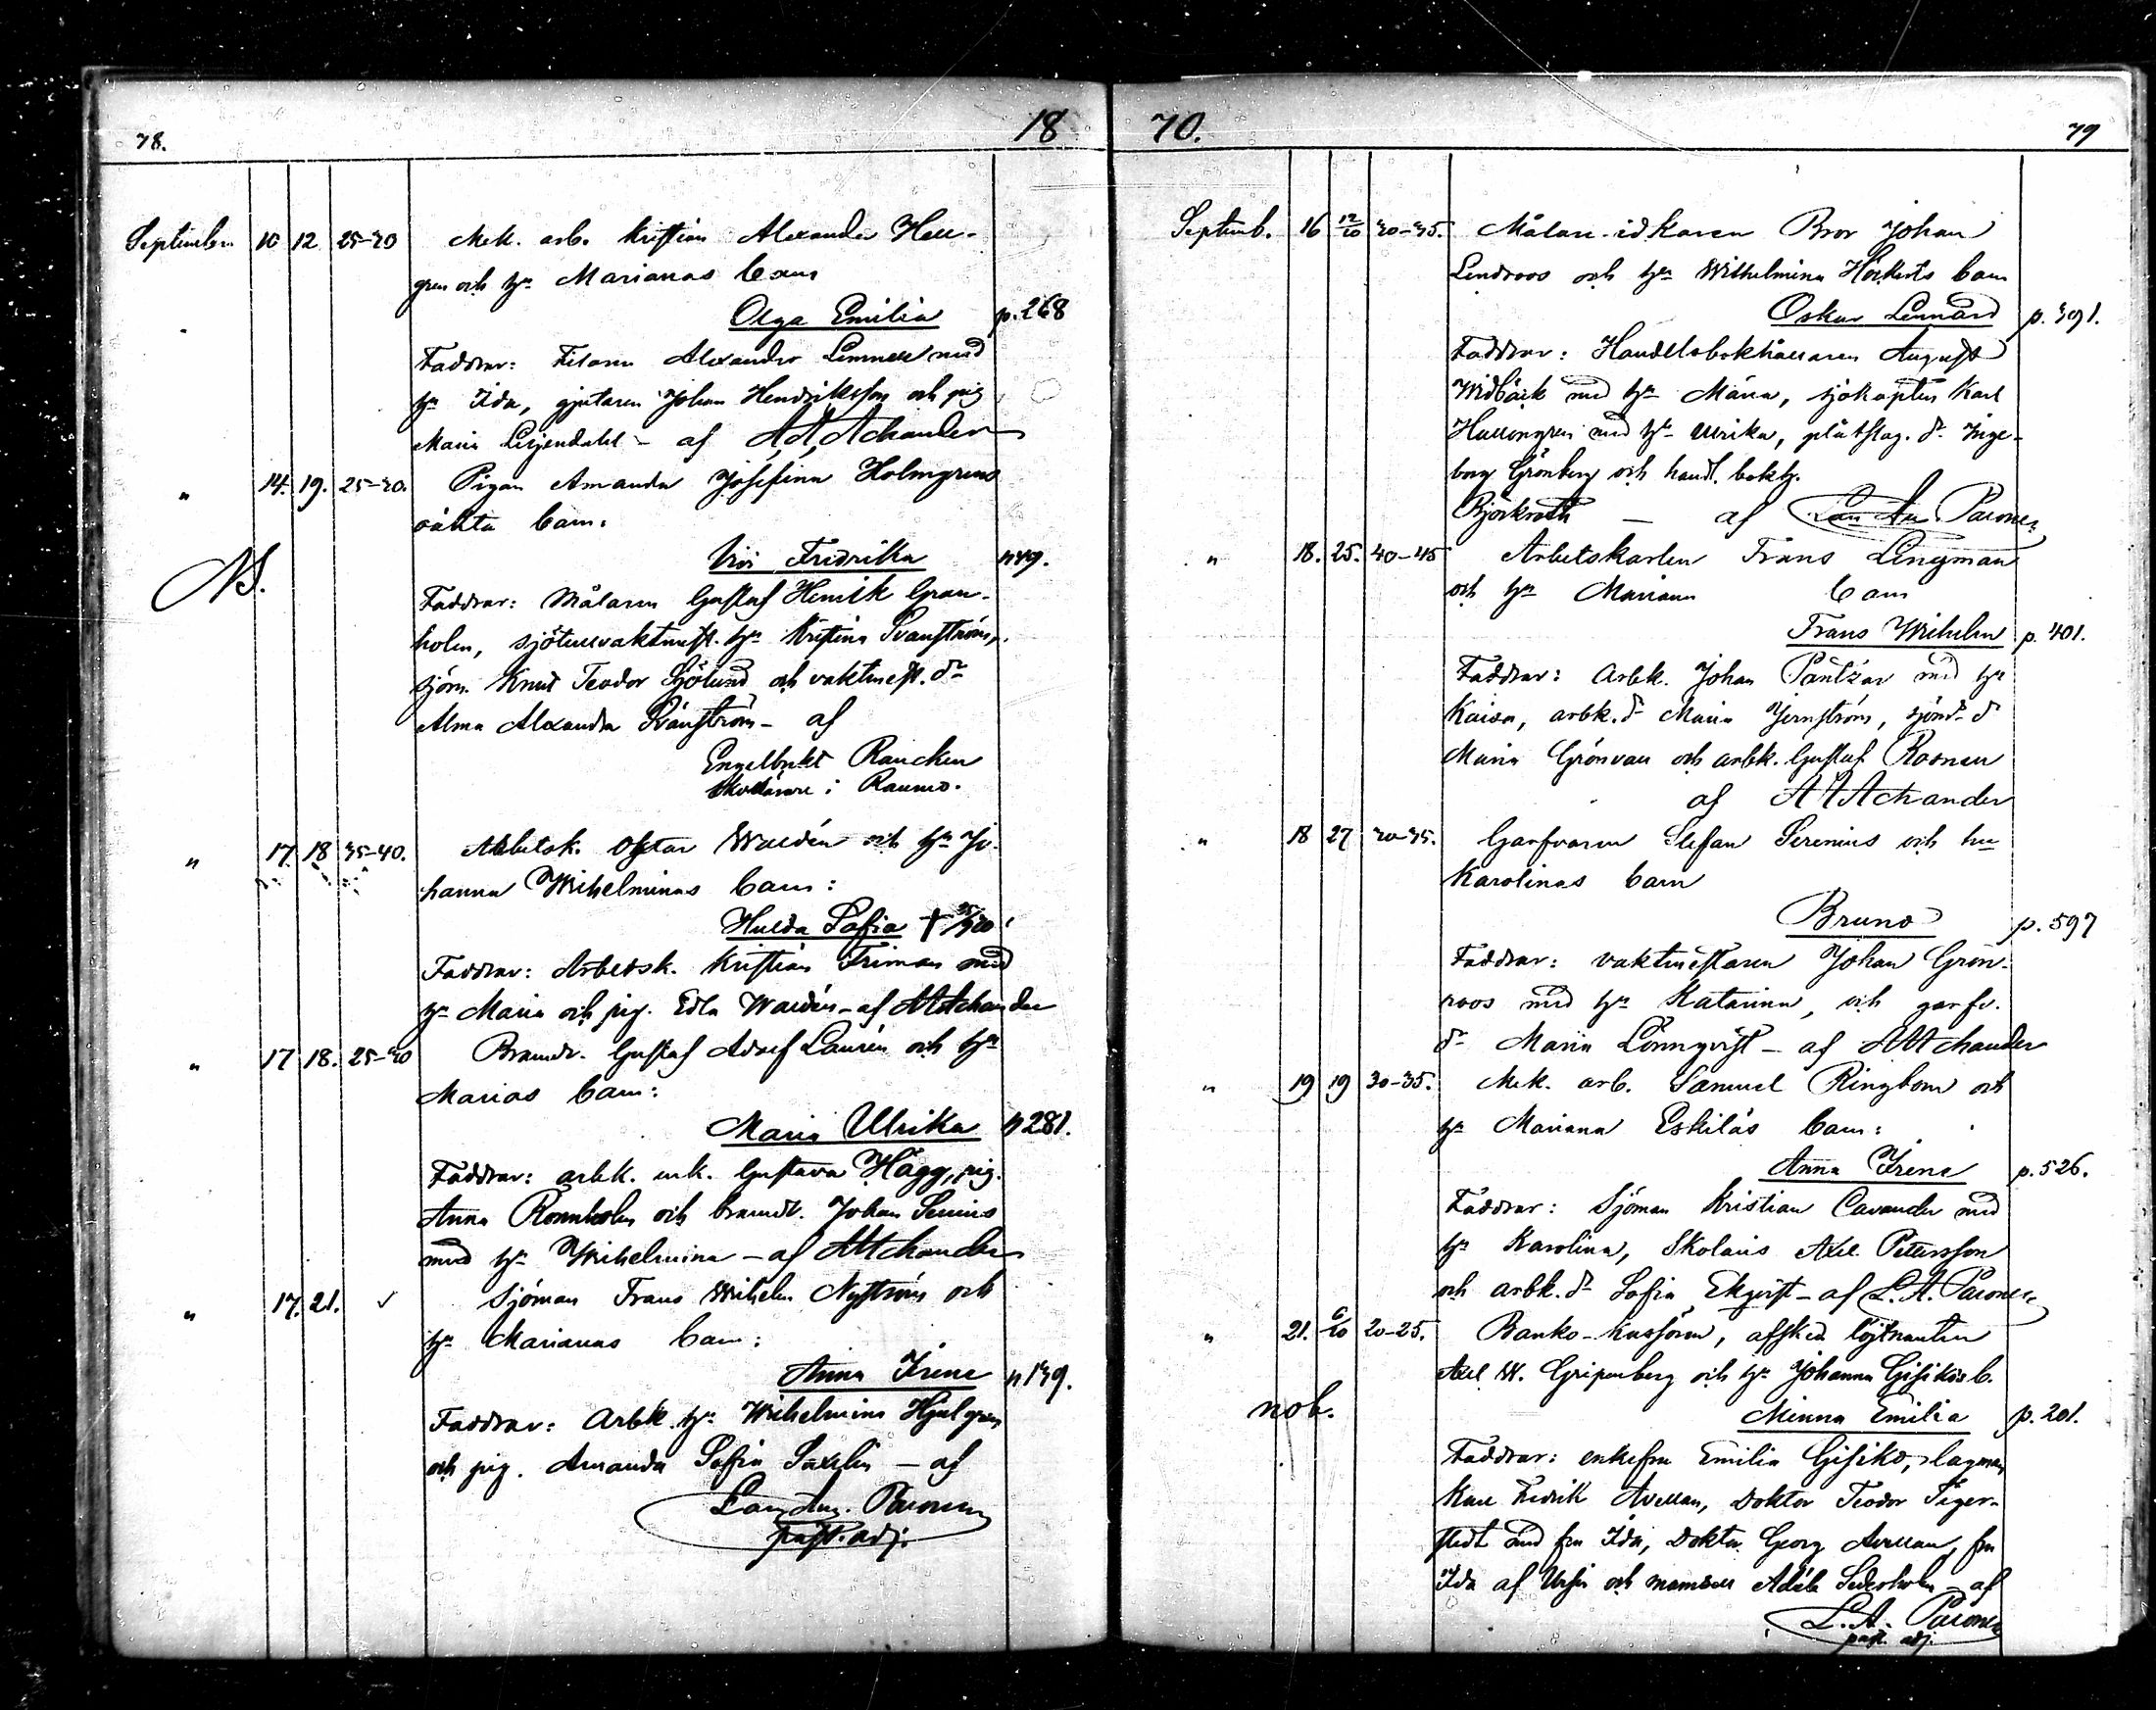 78.
18
September 10 12 25-30 Mek. arb. Kristian Alexander Hell-
gren och h:u Marianas barn
Olga Emilia p. 268
Faddrar: Filaren Alexander Lemmell med
h:u Ida, gjutaren Johan Hendriksson och pig.
Maria Liljendahl - af A A Achander
" 14. 19. 25-30. Pigan Amanda Josefina Holmgrens
oäkta barn:
Fredrika
NB.
Faddrar: Målaren Gustaf Henrik Gran-
holm, sjötullvaktmest. h:u Kristina Svanström,
sjöm. Knut Teodor Sjölund och vaktmest. d:r
Alma Alexandra Svanström - af
Engelbrekt Rancken
Skollärare i Raumo.
" 17 18 35-40. Arbetsk. Oskar Waldén och h:u Jo-
hanna Wilhelminas barn:
Hulda Sofia †
Faddrar: Arbetsk. Kristian Friman med
h:u Maria och pig. Edla Waldén - af A A Achander
" 17 18. 25-30 Brandv. Gustaf Adolf Laurén och h:u
Marias barn:
Maria Ulrika p 281.
Faddrar: arbk. enk. Gustava Hägg, pig.
Anna Rönnholm och brandv. Johan Senius
med h:u Wilhelmina - af A A Achander
" 17. 21. ✓ Sjöman Frans Wilhelm Nyström och
h:u Marianas barn:
Anna Irene p 139.
Faddrar: Arbk. h:u Wilhelmina Hjelgren
och pig. Amanda Sofia Saxelin - af
Lars Aug. Paronen
past. adj.
70.
79
Septemb. 16 12/10 30-35. Målare-idkaren Bror Johan
Lindroos och h:u Wilhelmina Höckerts barn
Oskar Lennard p. 391.
Faddrar: Handelsbokhållaren August
Widbäck med h:u Maria, sjökapten Karl
Hallongren med h:u Ulrika, plåtslag. d:r Inge-
borg Grönberg och handl. bokh.
Björkroth - af Lars Au. Paronen
" 18. 25. 40-45 Arbetskarlen Frans Lingman
och h:u Mariana barn
Frans Wilhelm p. 401.
Faddrar: Arbk. Johan Pantzar med h:u
Kaisa, arbk. d:r Maria Jernström, sjöm. d:r
Maria Grönvall och arbk. Gustaf Rosnell
af A A Achander
" 18 27 30-35. Garfvaren Stefan Serenius och hu
Karolinas barn
Bruno p. 597
Faddrar: vaktmestaren Johan Grön-
roos med h:u Katarina, och garfv.
d:r Maria Lönnqvist - af A A Achander
" 19 19 30-35. Mek. arb. Samuel Ringbom och
h:u Mariana Eskilas barn:
Anna Irene p. 526.
Faddrar: Sjöman Kristian Cavander med
h:u Karolina, Skolaris Axel Petersson
och arbk. d:r Sofia Ekqvist - af L. A. Paronen
" 21. 6/10 20-25. Banko-kassören, afsked. löjtnanten
Axel W. Gripenberg och h:u Johanna Gisikos b.
nob.
Minna Emilia p. 201.
Faddrar: enkefru Emilia Gisiko, lagman
Karl Fredrik Avellan, Doktor Teodor Tiger-
stedt med fru Ida, Doktor Georg Avellan, fru
Ida af Ursin och mamsell Adéle Sederholm - af
L. A. Paronen
past. adj.